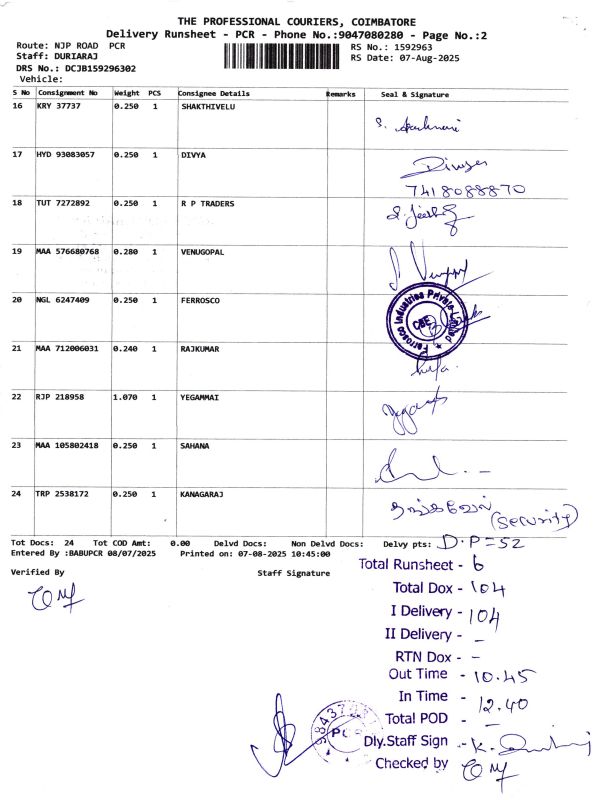 THE PROFESSIONAL COURIERS, COIMBATORE
Delivery Runsheet - PCR - Phone No.:9047080280 - Page No.:2
Route: NJP ROAD PCR
RS No.: 1592963
Staff: DURIARAJ
RS Date: 07-Aug-2025
DRS No.: DCJB159296302
Vehicle:
S No Consignment No Weight PCS Consignee Details Remarks Seal & Signature
16 KRY 37737 0.250 1 SHAKTHIVELU
17 HYD 93083057 0.250 1 DIVYA
7418088870
18 TUT 7272892 0.250 1 R P TRADERS
19 MAA 576680768 0.280 1 VENUGOPAL
20 NGL 6247409 0.250 1 FERROSCO
Ferrosco Industries Private Limited
CBE
21 MAA 712006031 0.240 1 RAJKUMAR
22 RJP 218958 1.070 1 YEGAMMAI
23 MAA 105802418 0.250 1 SAHANA
24 TRP 2538172 0.250 1 KANAGARAJ
(Security)
Tot Docs: 24 Tot COD Amt: 0.00 Delvd Docs: Non Delvd Docs: Delvy pts: D.P=52
Entered By :BABUPCR 08/07/2025 Printed on: 07-08-2025 10:45:00
Verified By Staff Signature
Total Runsheet - 6
Total Dox - 104
I Delivery - 104
II Delivery - -
RTN Dox - -
Out Time - 10.45
In Time - 12.40
Total POD - -
Dly.Staff Sign -
Checked by